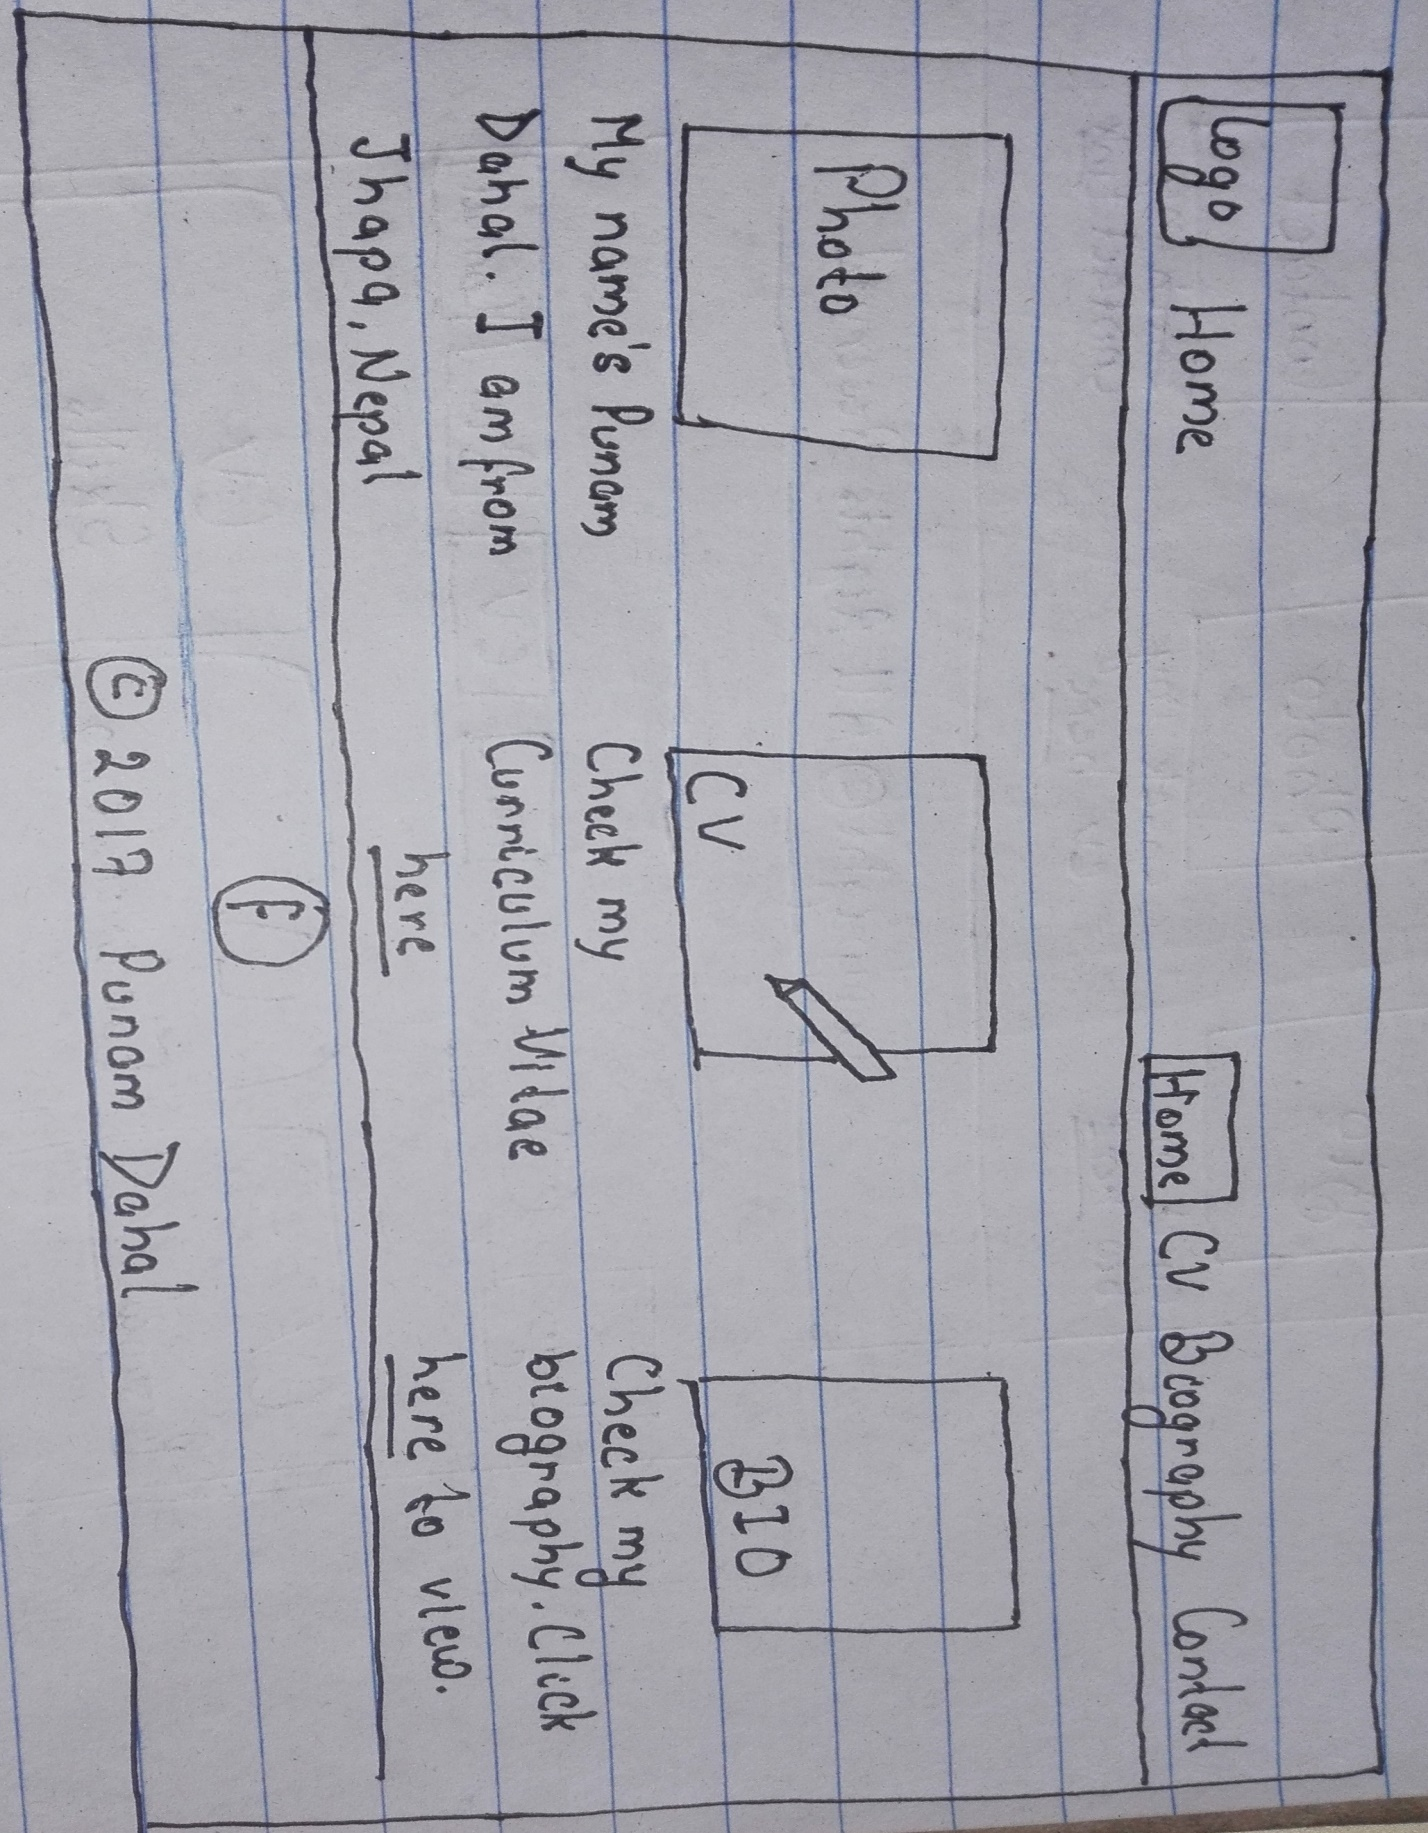 Logo Home
Home CV Biography Contact
Photo
My name's Punam
Dahal. I am from
Jhapa, Nepal
CV
Check my
Curriculum Vitae
here
BIO
Check my
biography. Click
here to view.
f
© 2017 Punam Dahal